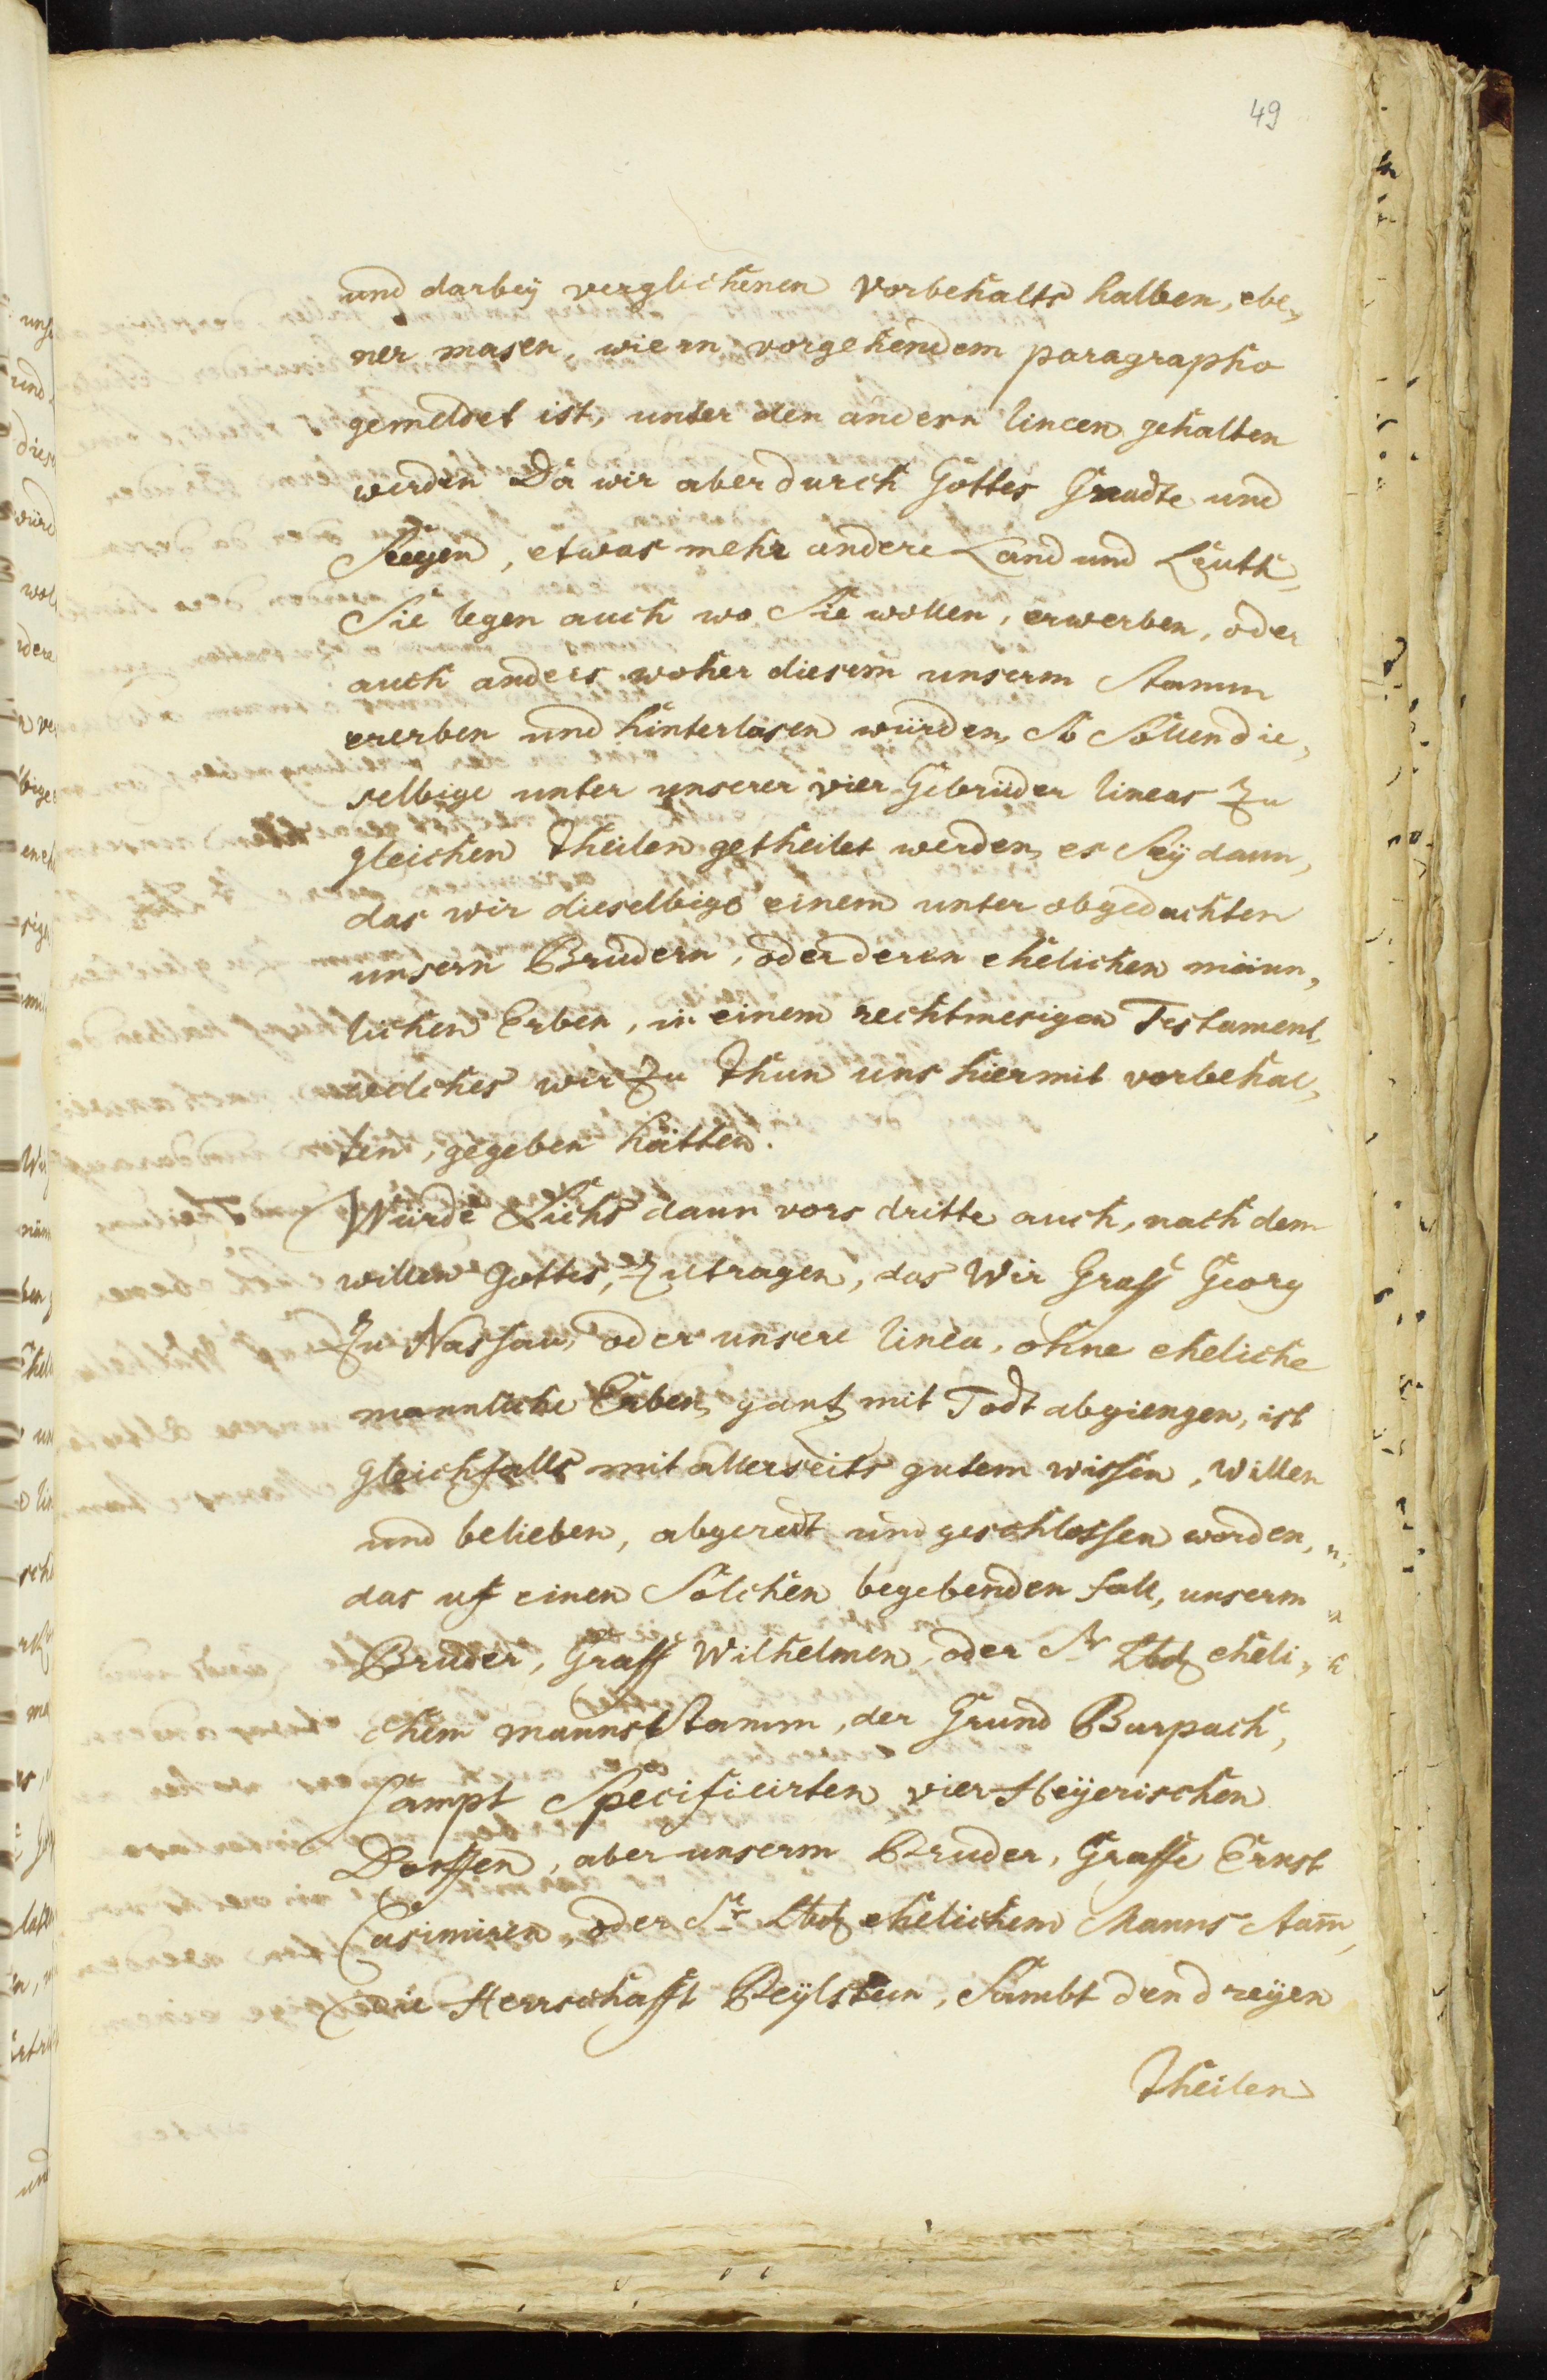 49
und darbey verglichenen vorbehalts halben, ebe„
ner masen, wie in vorgehendem paragrapho
gemeldet ist, unter den andern lineen gehalten
werden Da wir aber durch Gottes Gnadte und
Seegen, etwas mehr andere Land und Leuth„
Sie legen auch wo Sie wollen, erwerben, oder
auch anders woher diesem unserm Stamm
ererben und hinterlasen würden, So Sollen die„
selbige unter unserer vier Gebrüder lineas zu
gleichen Theilen getheilet werden, es Seÿ dann,
das wir dieselbige einem unter obgedachten
unsern Brüdern, oder deren ehelichen männ„
lichen Erben, in einem rechtmesigen Testament,
welches wir zu Thun uns hiermit vorbehal„
ten, gegeben hätten.
Würde Sichs dann vors dritte auch, nach dem
willen Gottes, zutragen, das Wir Graff Georg
zu Nassau, oder unsere linea, ohne eheliche
mannliche Erben, gantz mit Todt abgiengen, ist
gleichfalls mit allerseits gutem wissen, willen
und belieben, abgeredt und geschlossen worden,
das uf einen Solchen begebenden fall, unserm
Bruder, Graff Wilhelmen, oder Sr Lbd eheli„
chem mannsStamm, der Grund Burpach,
Sampt Specificirten vier Heÿerischen
Dorffen, aber unserm Bruder, Graffe Ernst
Casimiren, oder Sr Lbd ehelichem Manns Stam̅,
die Herrschafft Beÿlstein, Sambt den dreÿen
Theilen